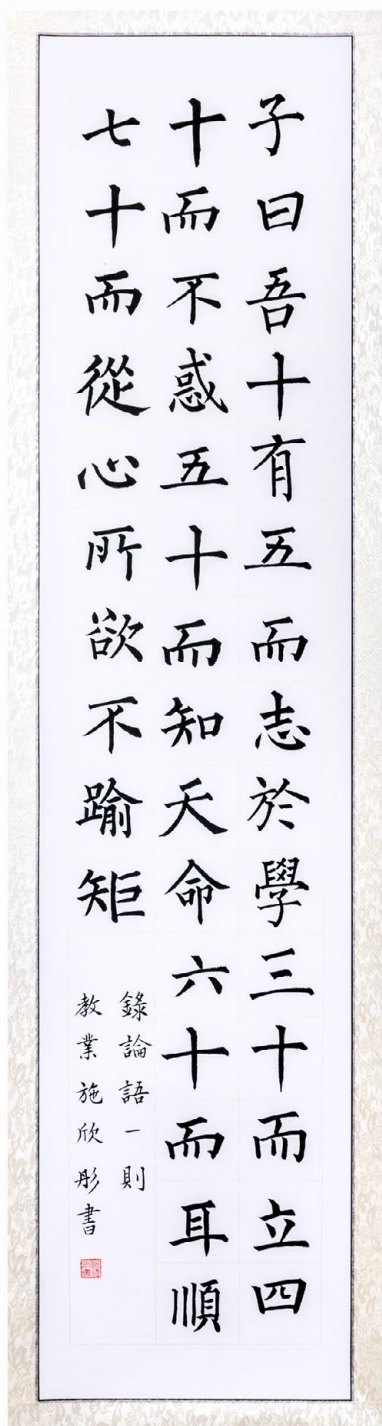 子曰吾十有五而志於學三十而立四
十而不惑五十而知天命六十而耳順
七十而從心所欲不踰矩
錄論語一則
教業施欣彤書